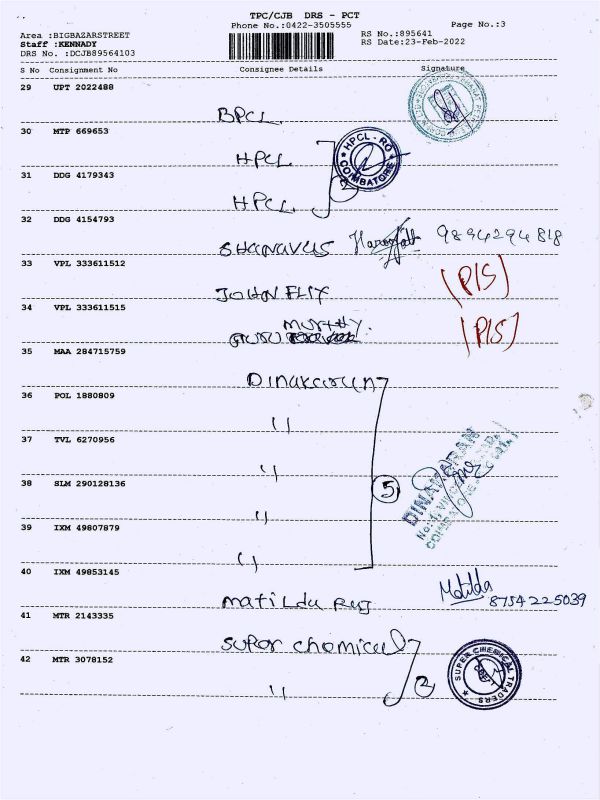 TPC/CJB DRS - PCT
Phone No.:0422-3505555
Page No.:3
Area :BIGBAZARSTREET
Staff :KENNADY
DRS No. :DCJB89564103
RS No.:895641
RS Date:23-Feb-2022
S No Consignment No Consignee Details Signature
29 UPT 2022488
BPCL
30 MTP 669653
HPCL
HPCL - RO
COIMBATORE
31 DDG 4179343
HPCL
2
32 DDG 4154793
SHANAVUS 9894294818
33 VPL 333611512
JOHN FLIX (PIS)
34 VPL 333611515
MURTHY.
GURU (PIS)
35 MAA 284715759
Dinakarun
36 POL 1880809
"
37 TVL 6270956
"
38 SLM 290128136
"
5
DINAMALAR
39 IXM 49807879
"
40 IXM 49853145
Matilda Raj Matilda
8754225039
41 MTR 2143335
Super chemical
42 MTR 3078152
"
2
SUPER CHEMICAL TRADERS